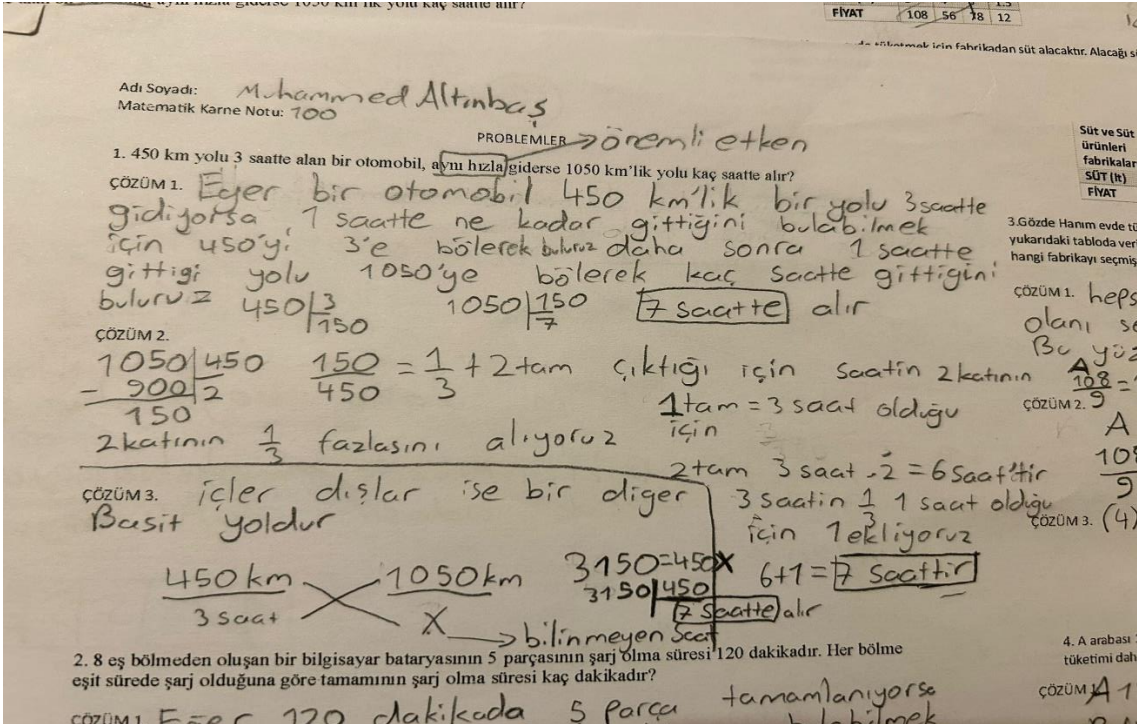 aynı hızla giderse 1050 km'lik yolu kaç saatte alır?
1.5
FİYAT 108 56 18 12
tüketmek için fabrikadan süt alacaktır. Alacağı
Adı Soyadı: Muhammed Altınbaş
Matematik Karne Notu: 100
PROBLEMLER → önemli etken
1. 450 km yolu 3 saatte alan bir otomobil, aynı hızla giderse 1050 km'lik yolu kaç saatte alır?
ÇÖZÜM 1. Eğer bir otomobil 450 km'lik bir yolu 3 saatte
gidiyorsa, 1 saatte ne kadar gittiğini bulabilmek
için 450'yi 3'e bölerek buluruz daha sonra 1 saatte
gittigi yolu 1050'ye bölerek kaç saatte gittigini
buluruz 450 | 3 1050 | 150 7 saatte alır
150 7
ÇÖZÜM 2.
1050 | 450 150/450 = 1/3 + 2 tam çıktığı için saatin 2 katının
- 900 | 2
150
1 tam = 3 saat olduğu
için
2 katının 1/3 fazlasını alıyoruz
2 tam 3 saat . 2 = 6 saat'tir
3 saatin 1/3 1 saat olduğu
için 1 ekliyoruz
6+1 = 7 saattir
ÇÖZÜM 3. içler dışlar ise bir diger
Basit yoldur
450 km 1050 km
3 saat X → bilinmeyen saat
3150=450X
3150 | 450
7 saatte alır
2. 8 eş bölmeden oluşan bir bilgisayar bataryasının 5 parçasının şarj olma süresi 120 dakikadır. Her bölme
eşit sürede şarj olduğuna göre tamamının şarj olma süresi kaç dakikadır?
ÇÖZÜM 1 Eger 120 dakikada 5 parça tamamlanıyorsa
Süt ve Süt
ürünleri
fabrikalar
SÜT (lt)
FİYAT
3.Gözde Hanım evde
yukarıdaki tabloda
hangi fabrikayı
ÇÖZÜM 1.
olanı
Bu
A
108/9 =
ÇÖZÜM 2.
A
9
ÇÖZÜM 3. (4)
4. A arabası
tüketimi
ÇÖZÜM A 1